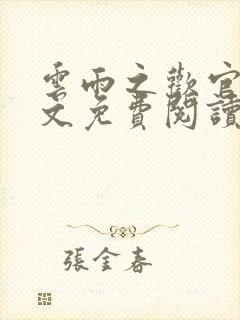 雲雨之歡官
文免費閱讀
張金春